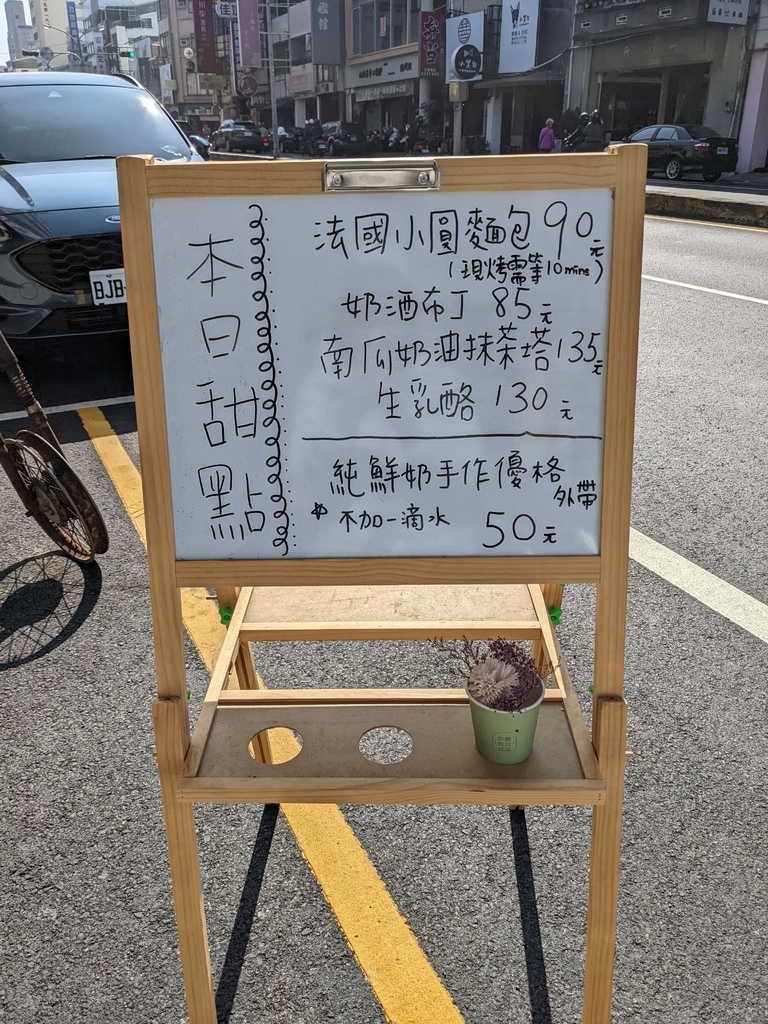 本日甜點
法國小圓麵包 90元
(現烤需等10mins)
奶酒布丁 85元
南瓜奶油抹茶塔 135元
生乳酪 130元
純鮮奶手作優格
外帶
不加一滴水 50元
BJB